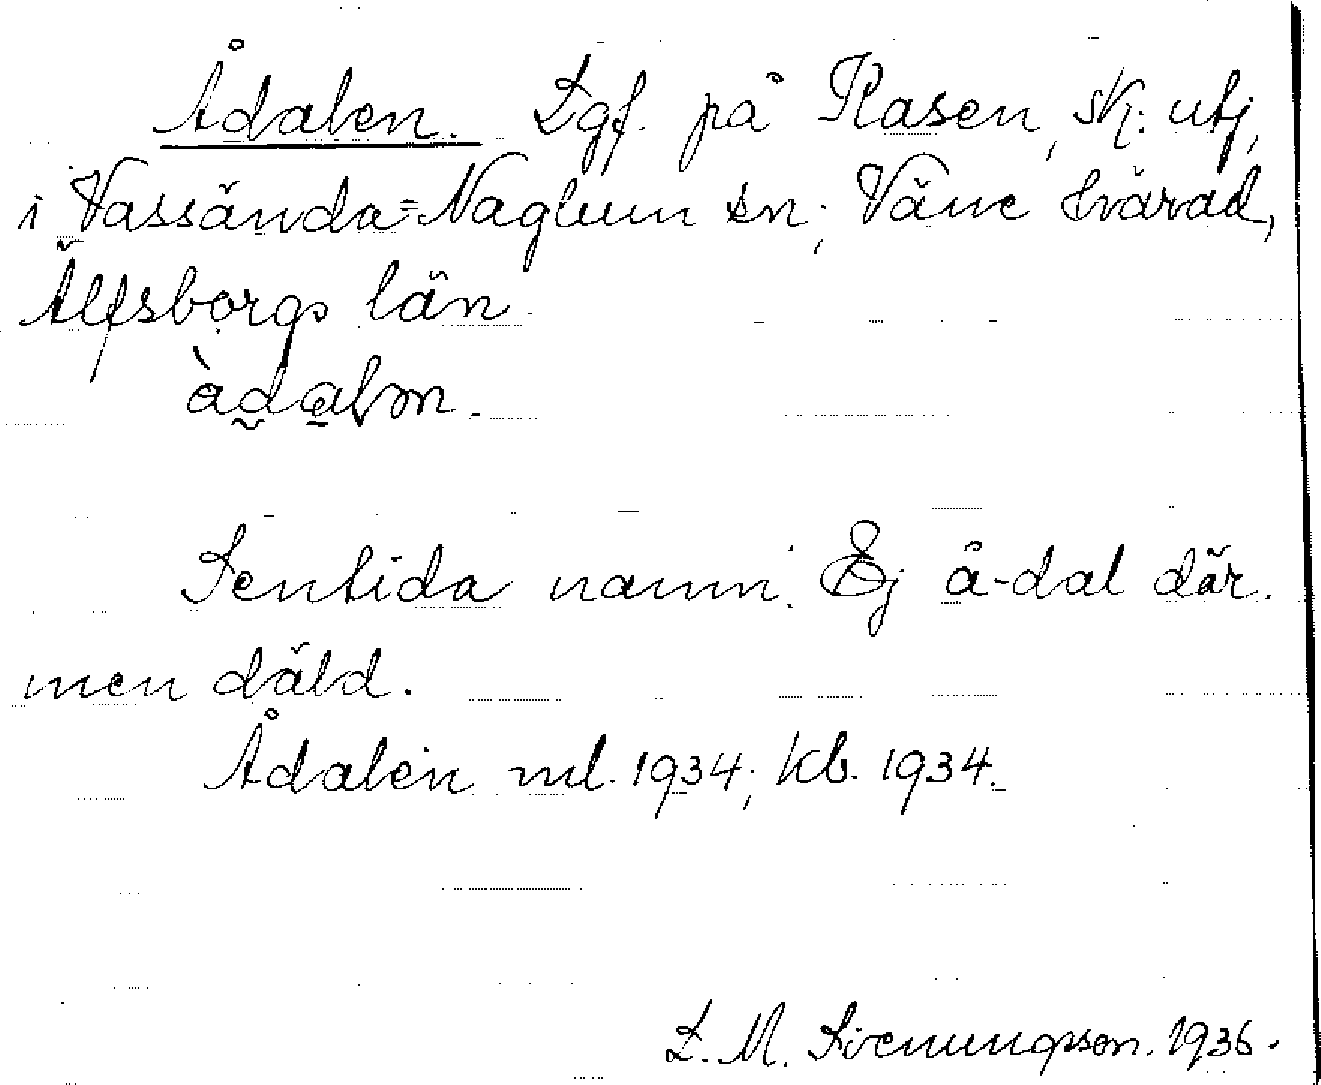 Ådalen. Lgf. på Rasen, sk. utj,
i Vassända-Naglum sn; Väne härad,
Älfsborgs län
àdalən.
Sentida namn. Ej å-dal där.
men däld.
Ådalen ml. 1934; kb. 1934.
L. M. Svenungsson. 1936.